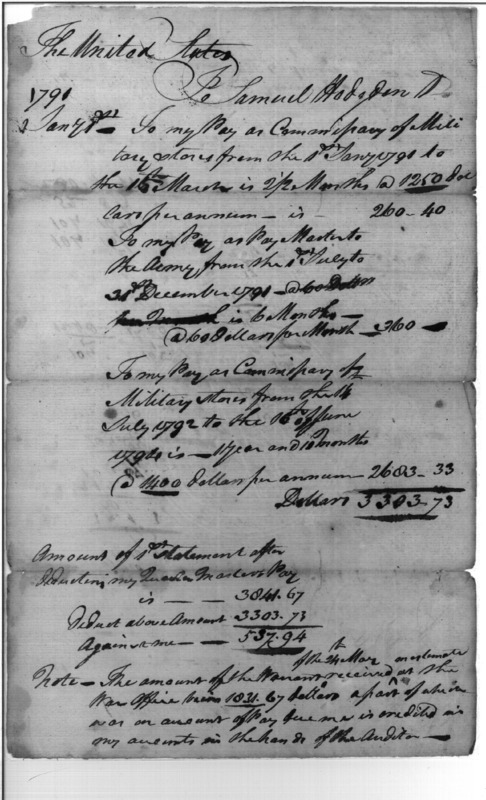 The United States
To Samuel Hodgdon Dr
1791
Jany 1st — To my Pay as Commissary of Mili
tary stores from the 1st Jany 1791 to
the 16th March is 2 1/2 Months @ 1250 dol
lars per annum — is — 260-40
To my Pay as Pay Master to
the Army from the 1st July to
31st December 1791 — @ 60 Dollars
is 6 Months —
@ 60 dollars per Month — 360 —
To my Pay as Commissary of
Military stores from the 14
July 1792 to the 16th of June
1794 is — 1 year and months
@ 1400 dollars per annum — 2683-33
Dollars 3303-73
Amount of 1st Statement after
deducting my Quarter Masters Pay
is — 3841.67
Deduct above Amount 3303.73
Against me — — 537.94
Note — The amount of the Warrant received of the 4th May on estimate at the
War Office was 1831.67 dollars a part of which
was on account of Pay due me is credited in
my accounts in the hands of the Auditor —